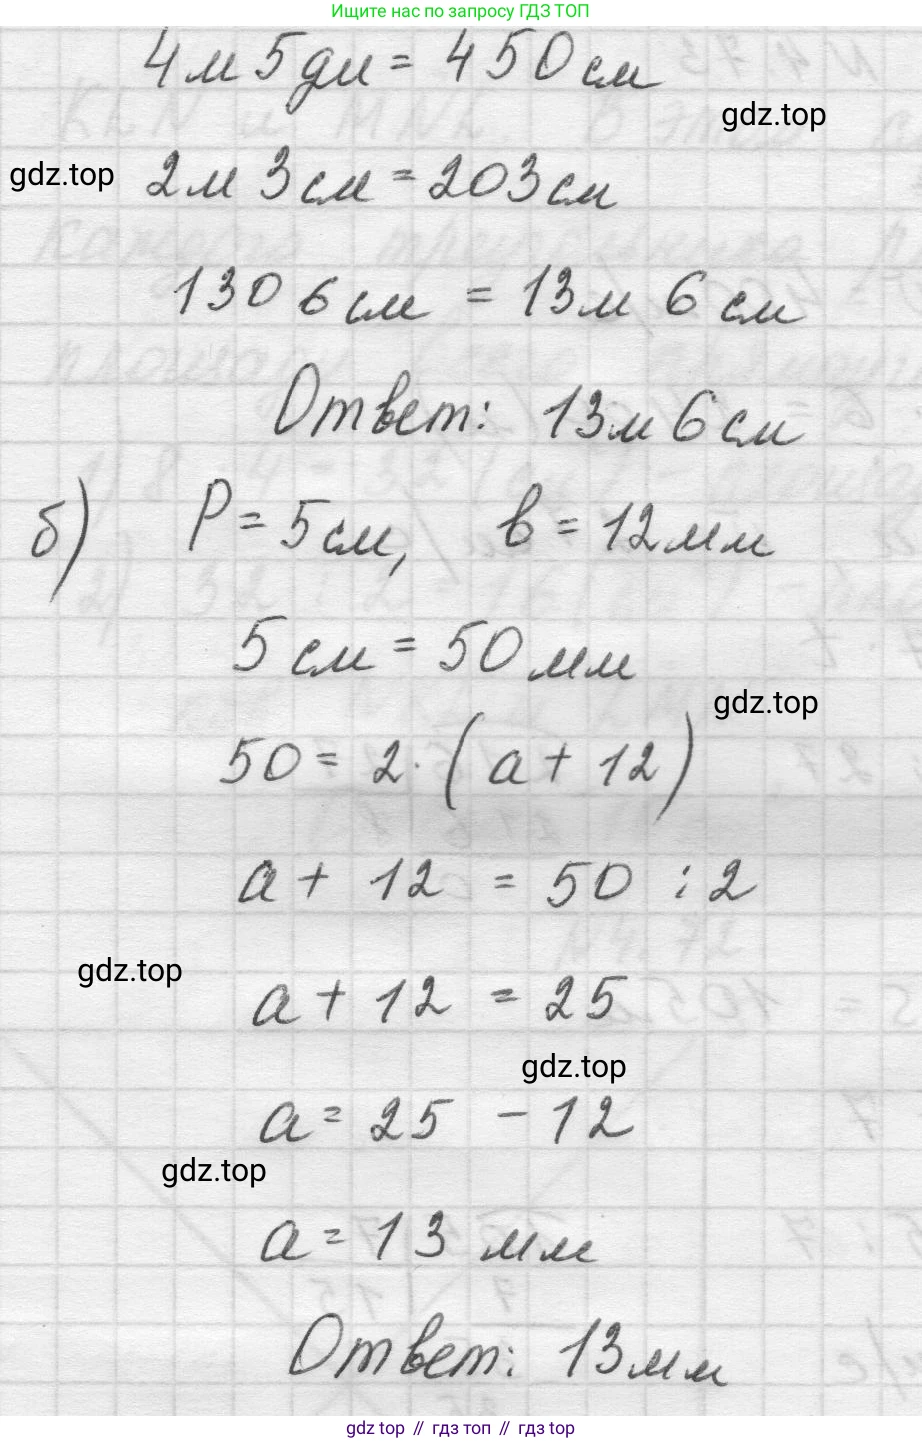 Ищите нас по запросу ГДЗ ТОП
4м 5дм = 450 см
gdz.top
gdz.top
2м 3см = 203см
1306см = 13м 6см
Ответ: 13м 6см
б) P = 5см, b = 12мм
5см = 50мм
gdz.top
50 = 2·(a + 12)
a + 12 = 50 : 2
gdz.top
a + 12 = 25
gdz.top
a = 25 - 12
gdz.top
a = 13 мм
Ответ: 13мм
gdz.top // гдз топ // гдз.top